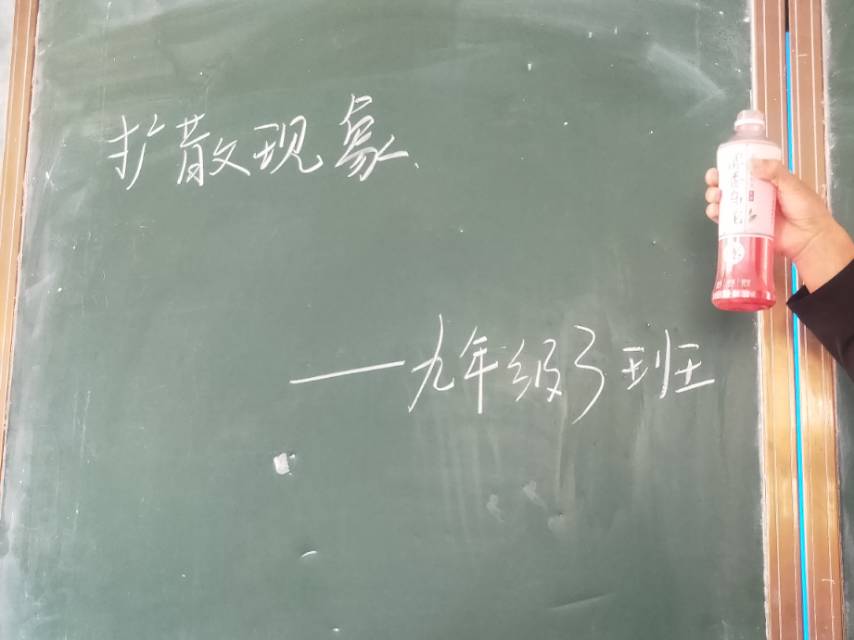 扩散现象
——九年级3班